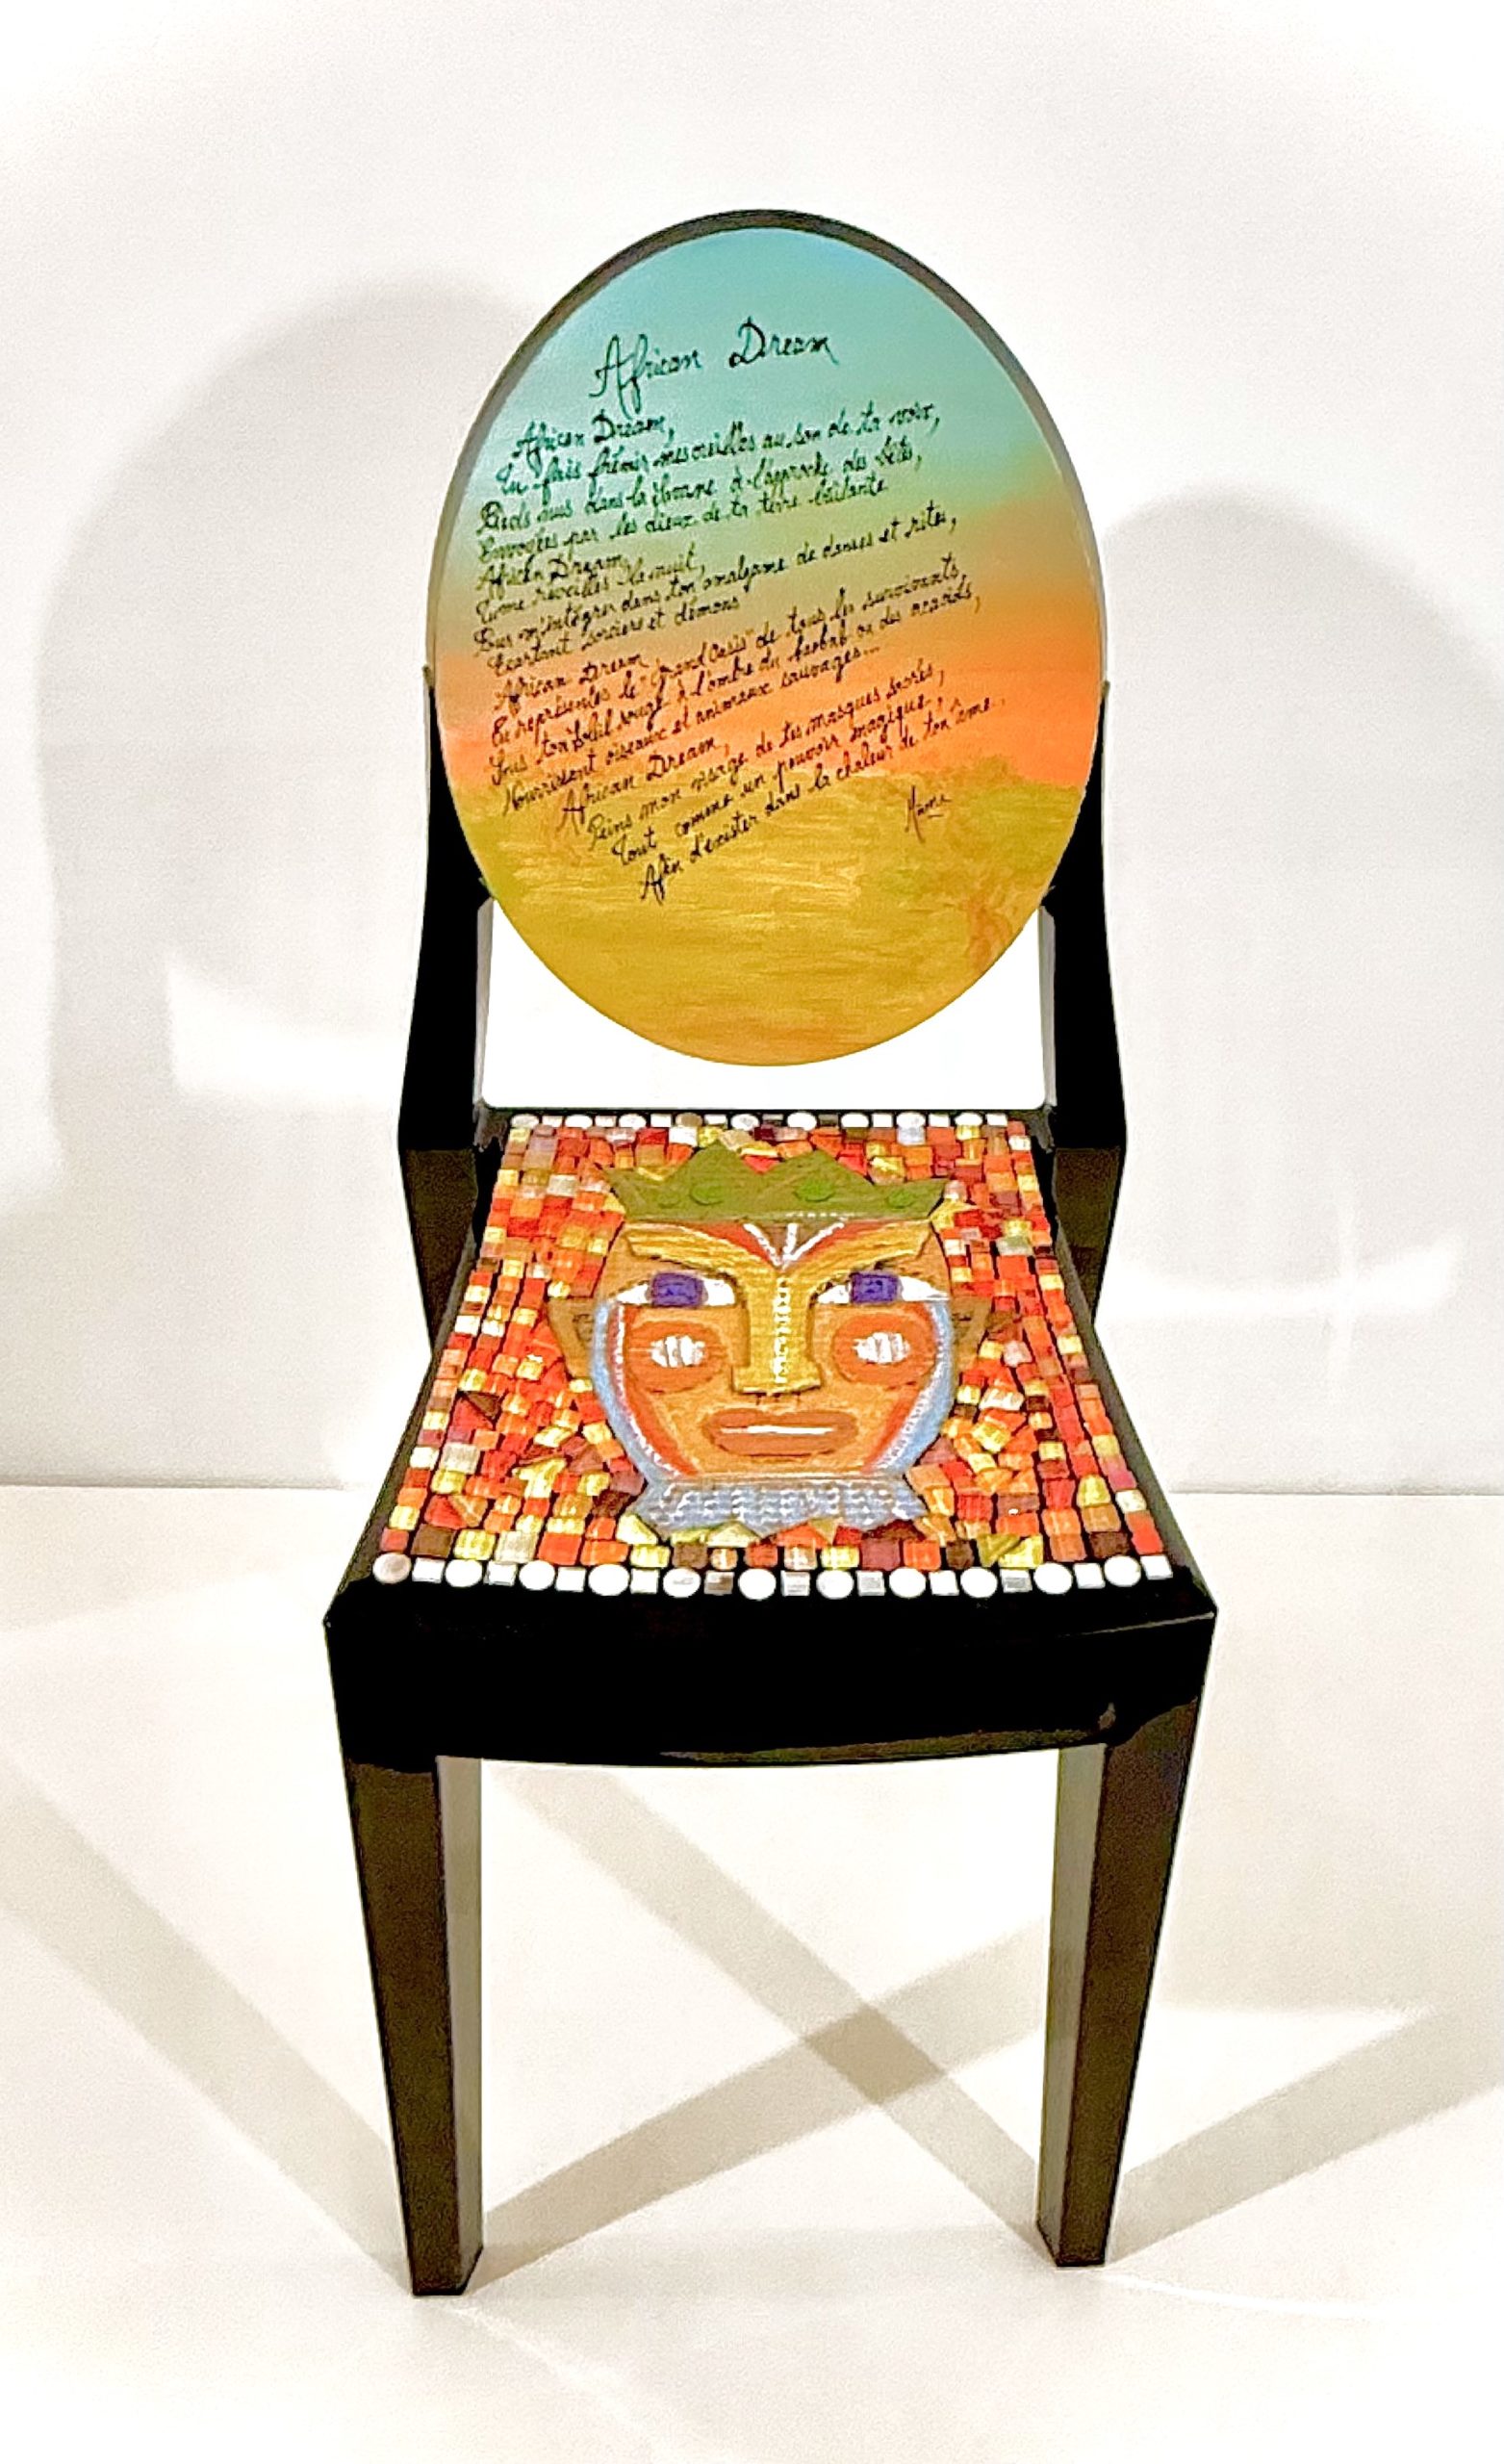 African Dream
African Dream,
Tu fais frémir mes oreilles au son de ta voix,
Pieds nus dans la brousse à l'approche des bêtes,
Envoyées par les dieux de ta terre brûlante
African Dream,
Tu me réveilles la nuit,
Pour m'intégrer dans ton amalgame de danses et rites,
Ecartant sorciers et démons
African Dream,
Tu représentes le "Grand Oasis" de tous les survivants,
Sous ton soleil rouge à l'ombre du baobab ou des acacias,
Nourrissent oiseaux et animaux sauvages...
African Dream,
Peins mon visage de tes masques sacrés,
Tout comme un pouvoir magique,
Afin d'exister dans la chaleur de ton âme.